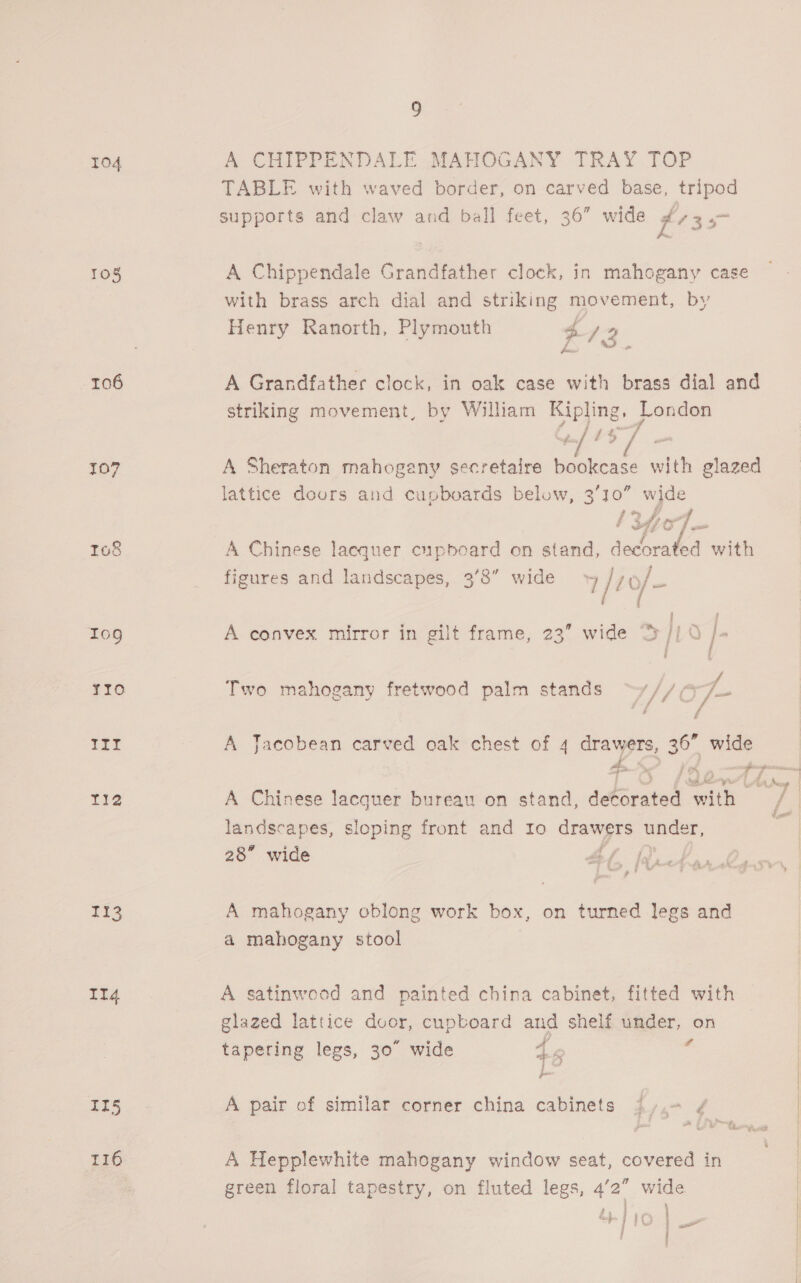 9
104 A CHIPPENDALE MAHOGANY TRAY TOP
TABLE with waved border, on carved base, tripod
supports and claw and ball feet, 36” wide
105 A Chippendale Grandfather clock, in mahogany case
with brass arch dial and striking movement, by
Henry Ranorth, Plymouth £13.
106 A Grandfather clock, in oak case with brass dial and
striking movement, by William Kipling, London
4/15/-
107 A Sheraton mahogany secretaire bookcase with glazed
lattice doors and cupboards below, 3’10” wide
108 A Chinese lacquer cupboard on stand, decorated with
figures and landscapes, 3’8” wide 7/10/-
109 A convex mirror in gilt frame, 23” wide 5/10/-
110 Two mahogany fretwood palm stands 7/10/-
111 A Jacobean carved oak chest of 4 drawers, 36” wide
112 A Chinese lacquer bureau on stand, decorated with
landscapes, sloping front and 10 drawers under,
28” wide
113 A mahogany oblong work box, on turned legs and
a mahogany stool
114 A satinwood and painted china cabinet, fitted with
glazed lattice door, cupboard and shelf under, on
tapering legs, 30” wide
115 A pair of similar corner china cabinets
116 A Hepplewhite mahogany window seat, covered in
green floral tapestry, on fluted legs, 4’2” wide
4/10/-